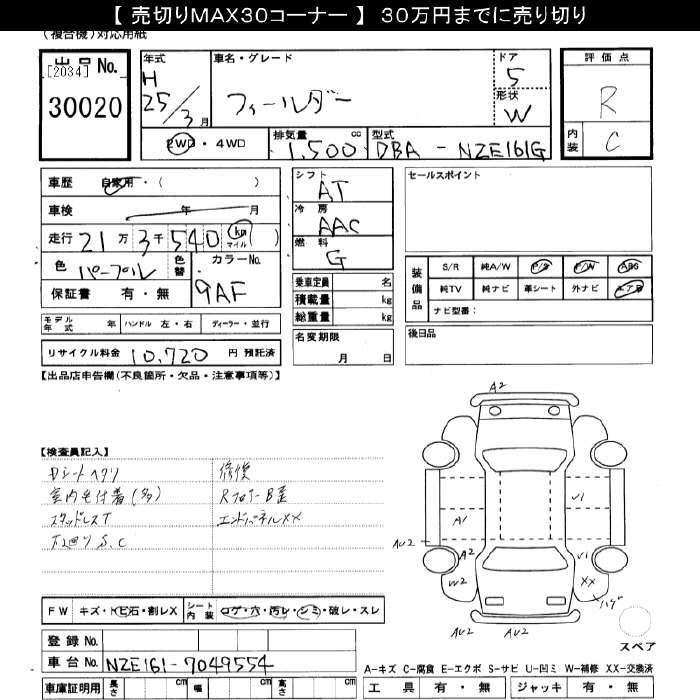 【 売切りMAX30コーナー 】 30万円までに売り切り
(複合機)対応用紙
出品 No.
[2034]
30020
年式
H 25/3月
車名・グレード
フィールダー
ドア
5
形状
W
評価点
R
内装
C
2WD・4WD
排気量 cc
1,500
型式
DBA - NZE161G
車歴 自家用・( )
車検 年 月
走行 21万3千540 km マイル ( )
色 パープル 色替
カラーNo.
9AF
保証書 有・無
シフト
AT
冷房
AAC
燃料
G
乗車定員 名
積載量 kg
総重量 kg
セールスポイント
装備品
S/R 純A/W P/S P/W ABS
純TV 純ナビ 革シート 外ナビ エアB
ナビ型番:
モデル年式 年 ハンドル 左・右 ディーラー・並行
リサイクル料金 10,720 円 預託済
名変期限
月 日
後日品
【出品店申告欄(不良箇所・欠品・注意事項等)】
【検査員記入】
Dシートヘタリ
室内毛付着(多)
スタッドレスT
下廻りS.C
修復
RフロアーB歪
エンドパネルXX
A2
A1
AU2
A2
W2
U1
U1
XX
ハゲ
AU2
AU2
スペア
FW キズ・ヒ石・割レX
シート内装 コゲ・穴・汚レ・シミ・破レ・スレ
登録 No.
車台 No. NZE161-7049554
車庫証明用 長さ cm 幅 cm 高さ cm
A-キズ C-腐食 E-エクボ S-サビ U-凹ミ W-補修 XX-交換済
工具 有・無 ジャッキ 有・無